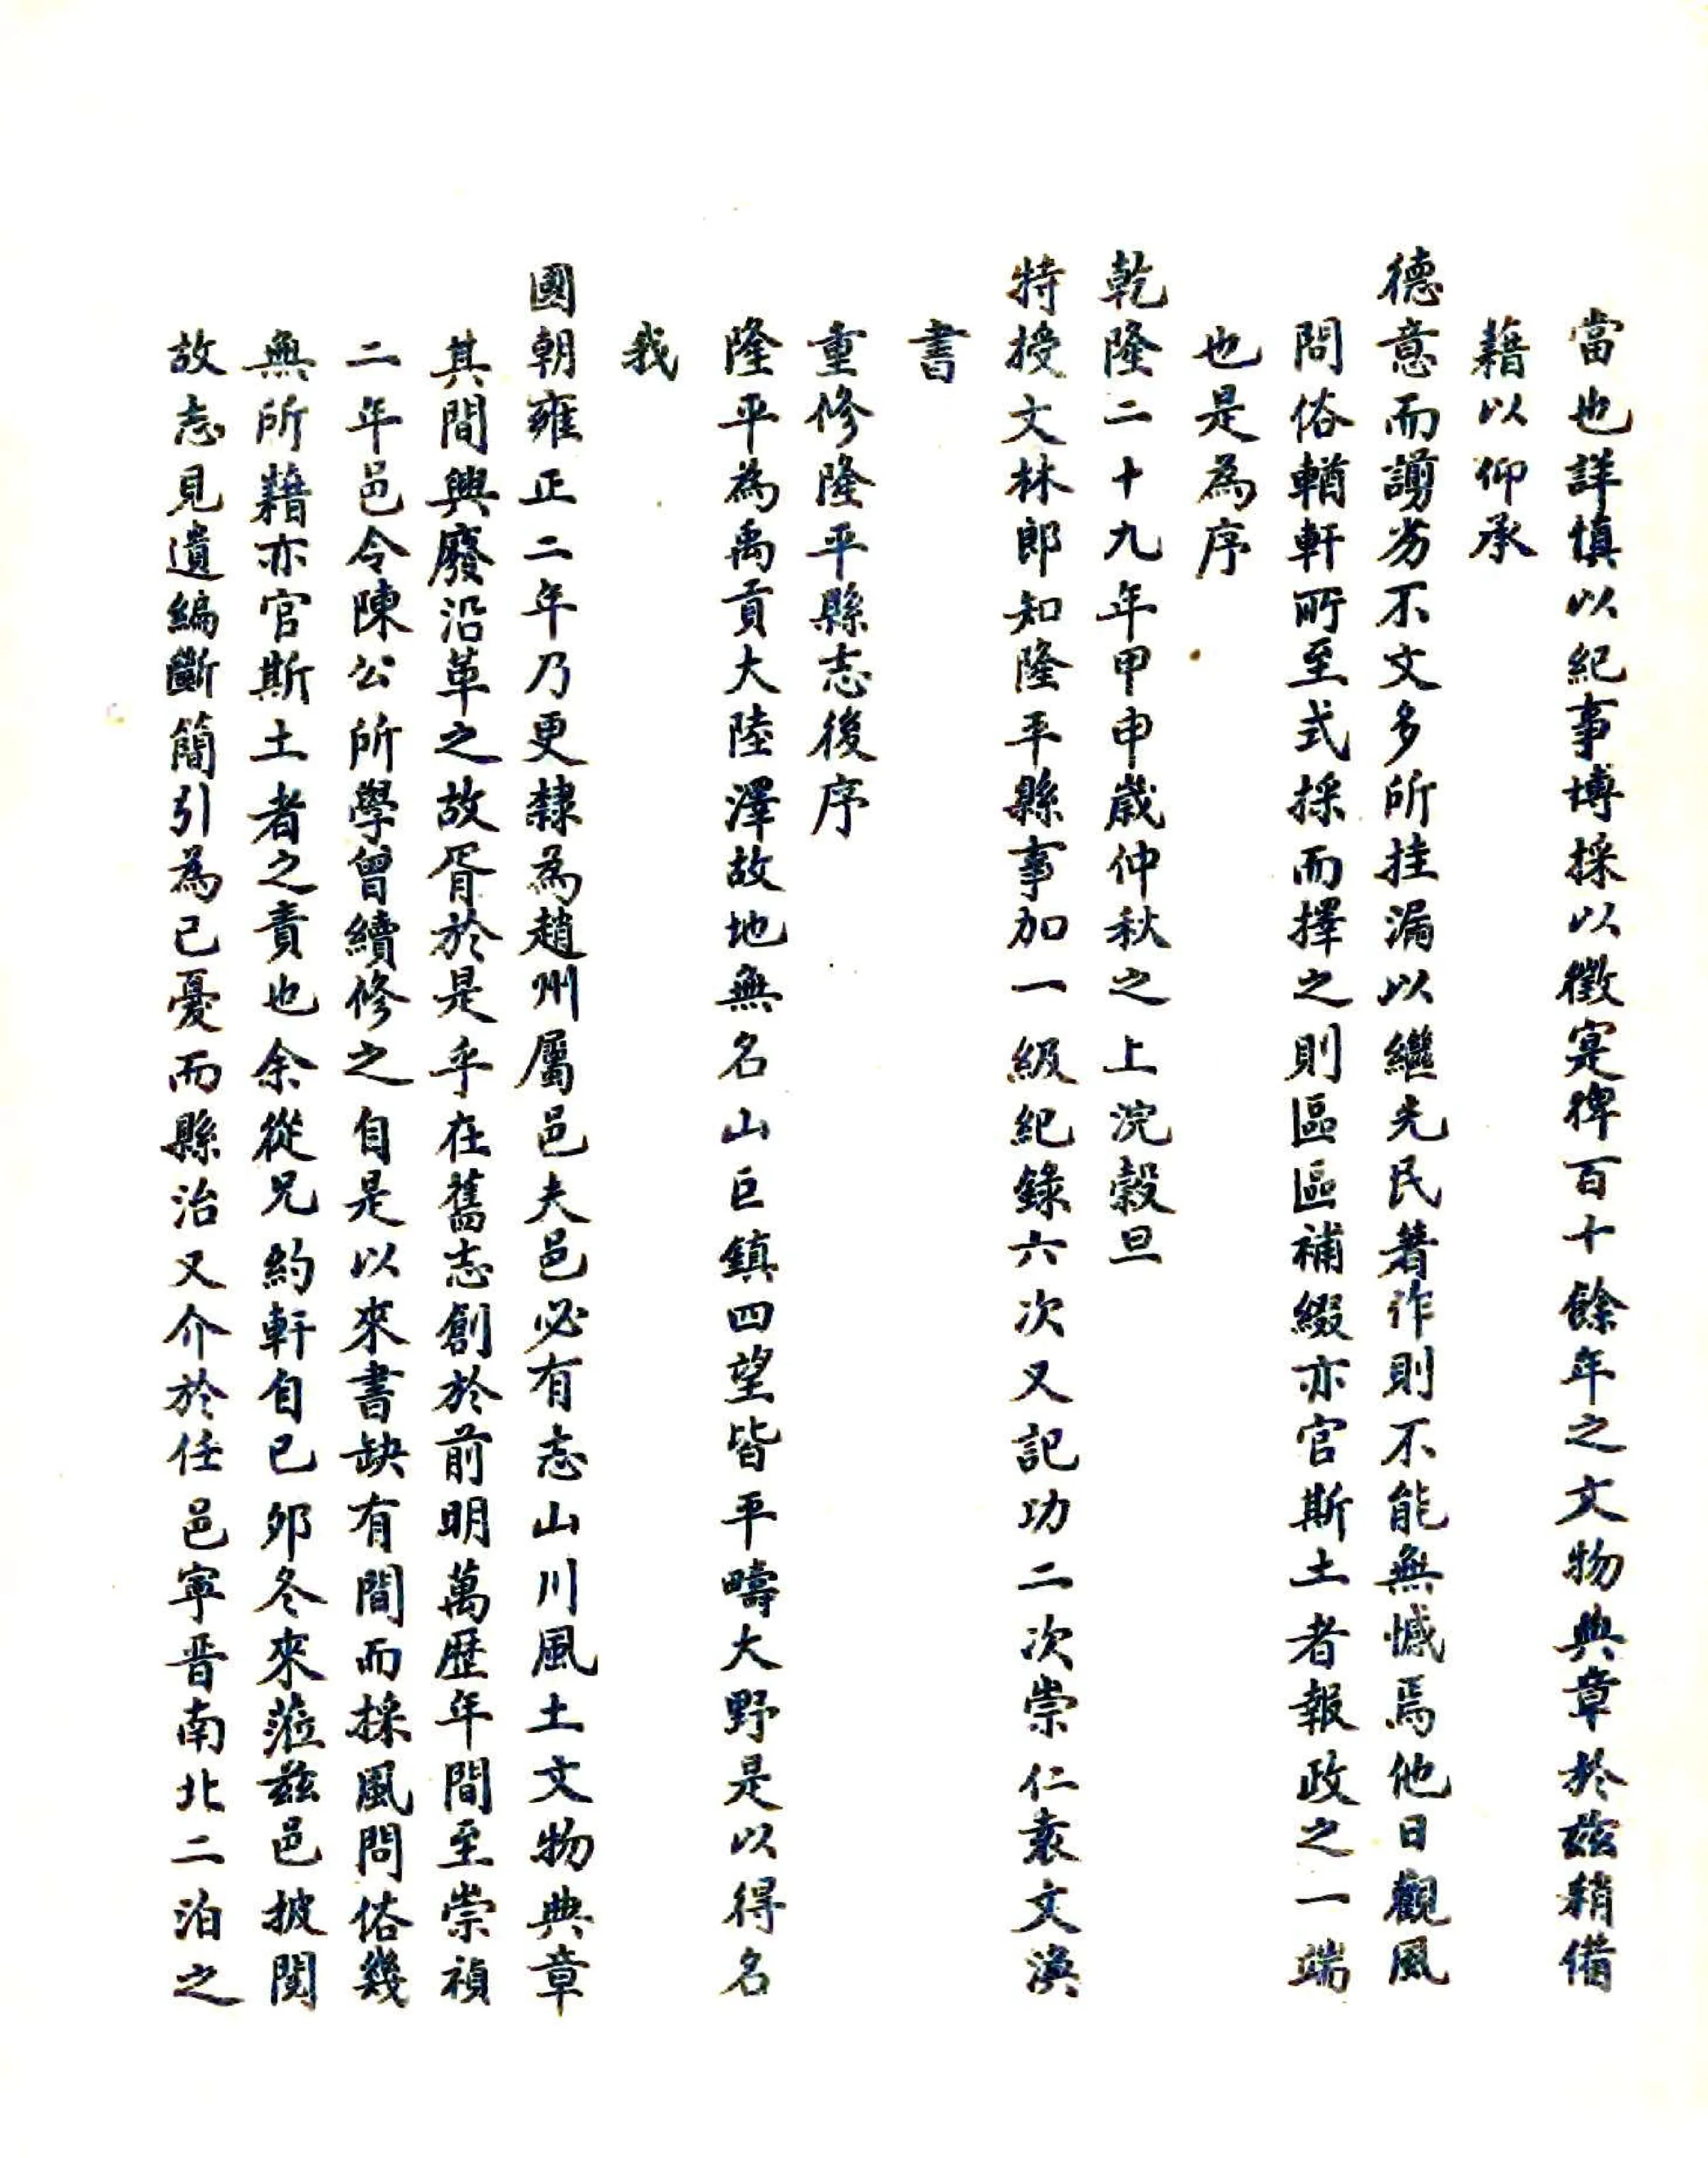 當也詳慎以紀事博採以徵寔稗百十餘年之文物典章於茲稍備
藉以仰承
德意而謭劣不文多所挂漏以繼先民著作則不能無憾焉他日觀風
問俗輶軒所至式採而擇之則區區補綴亦官斯土者報政之一端
也是為序
乾隆二十九年甲申歲仲秋之上浣穀旦
特授文林郎知隆平縣事加一級紀錄六次又記功二次崇仁袁文渙
書
重修隆平縣志後序
隆平為禹貢大陸澤故地無名山巨鎮四望皆平疇大野是以得名
我
國朝雍正二年乃更隸為趙州屬邑夫邑必有志山川風土文物典章
其間興廢沿革之故胥於是乎在舊志創於前明萬歷年間至崇禎
二年邑令陳公所學曾續修之自是以來書缺有間而採風問俗幾
無所藉亦官斯土者之責也余從兄約軒自己夘冬來蒞茲邑披閱
故志見遺編斷簡引為己憂而縣治又介於任邑寧晋南北二泊之